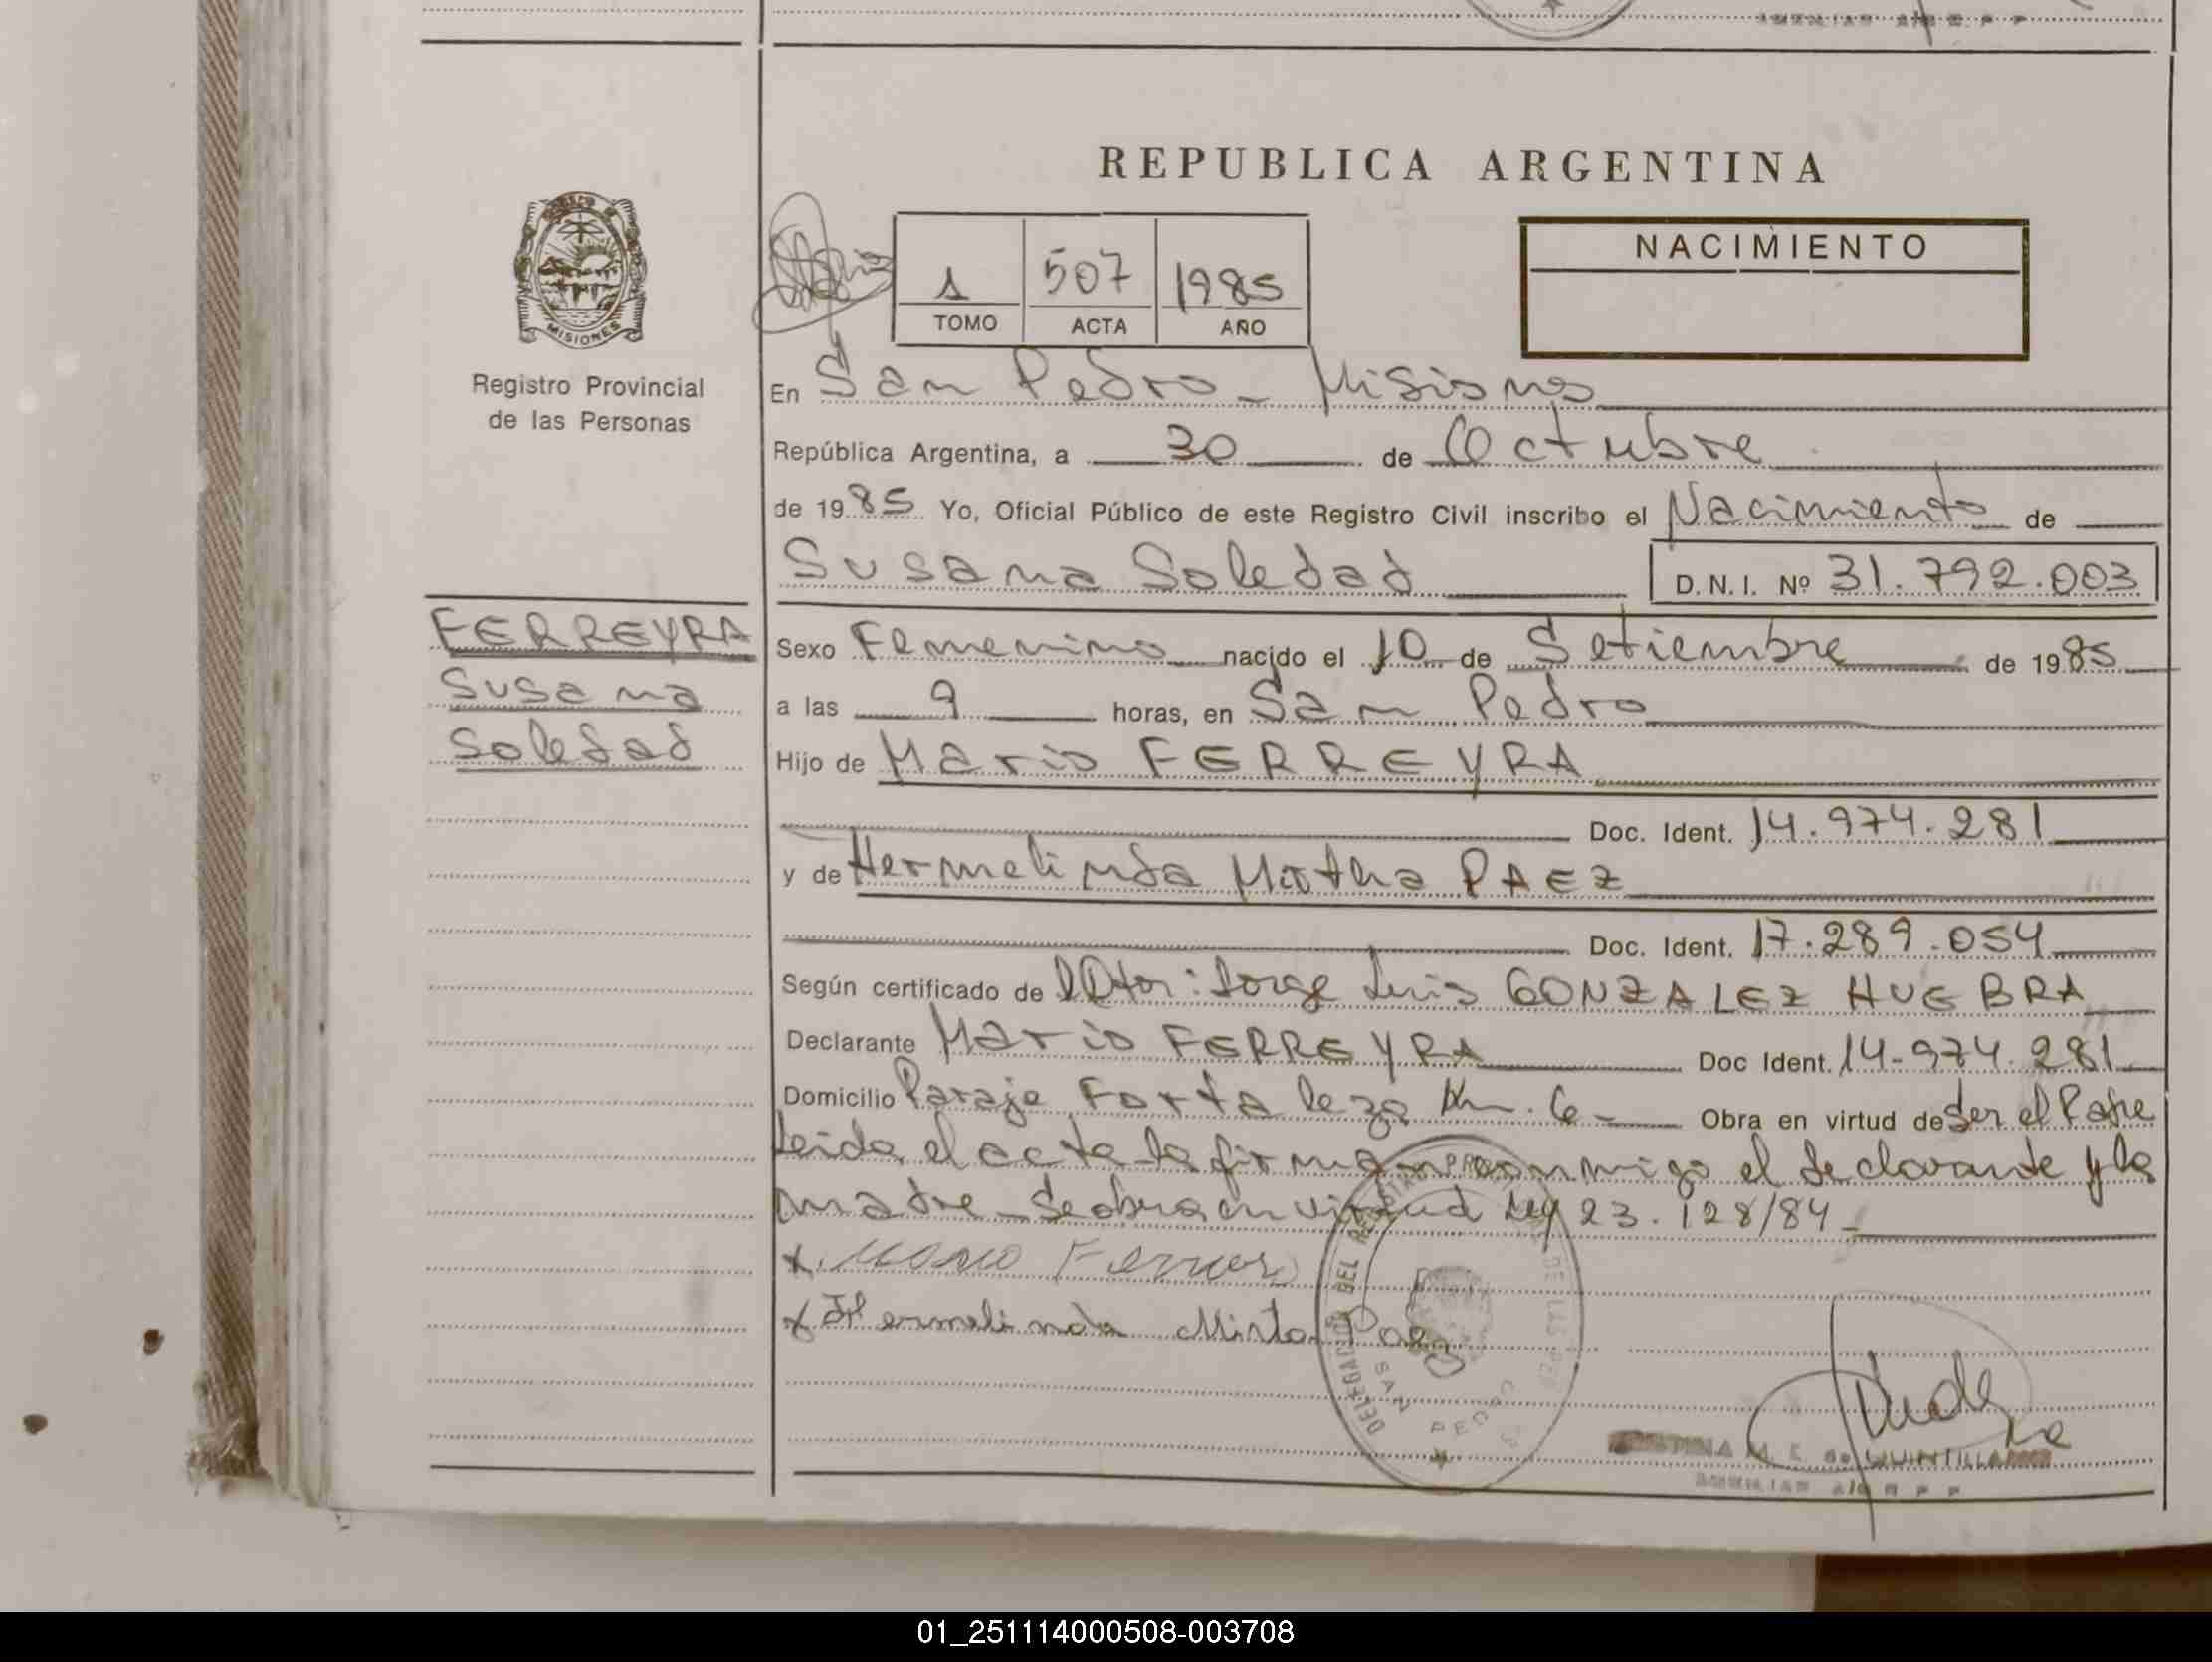 REPUBLICA ARGENTINA
MISIONES
Registro Provincial
de las Personas
1 507 1985
TOMO ACTA AÑO
NACIMIENTO
En San Pedro - Misiones
República Argentina, a 30 de Octubre
de 1985 Yo, Oficial Público de este Registro Civil inscribo el Nacimiento de
Susana Soledad D.N.I. Nº 31.792.003
FERREYRA
Susana
Soledad
Sexo Femenino nacido el 10 de Setiembre de 1985
a las 9 horas, en San Pedro
Hijo de Mario FERREYRA
Doc. Ident. 14.974.281
y de Hermelinda Mirtha PAEZ
Doc. Ident. 17.289.054
Según certificado de Jorge Luis GONZALEZ HUEBRA
Declarante Mario FERREYRA Doc Ident. 14-974.281
Domicilio Paraje Fortaleza Km. 6 - Obra en virtud de Ser el Padre
Leida el acta la firman conmigo el declarante y la
madre - Se obra en virtud Ley 23.128/84 -
x Mario
x Hermelinda Mirta Paez
DELEGACION DEL REGISTRO DE LAS
SAN PEDRO
M. E. de QUINTILLAN
AUXILIAR A/C R P P
01_251114000508-003708